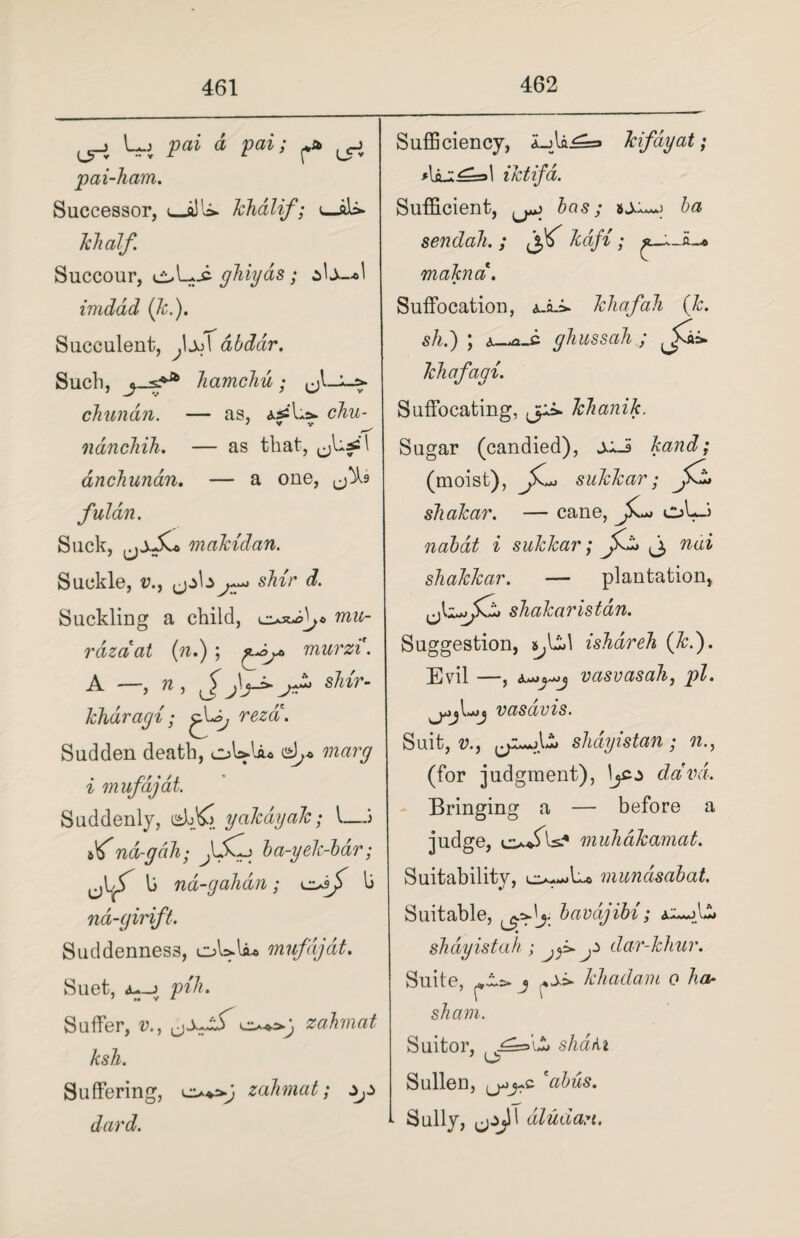 461
پی پا پی pai á pai; پی هم
pai-ham.
Successor, خالف khálif; خلف
khalf.
Succour, غیاث ghiyás; امداد
imdád (k.).
Succulent, آبدار ábdár.
Such, همچو hamchú; چنان
chunán. — as, چنانچه chu-
nánchih. — as that, آنچنان
ánchunán. — a one, فلان
fulán.
Suck, مکیدن makídan.
Suckle, v., شیر دادن shír d.
Suckling a child, مراضعت mu-
ráza'at (n.); مرضع murzi'.
A —, n, شیر خوارگی shír-
kháragí; رضاع rezá'.
Sudden death, مرگ مفاجات marg
i mufáját.
Suddenly, یکایک yakáyak; نا
گاه ná-gáh; بیکبار ba-yek-bár;
نا گهان ná-gahán; نا گرفت
ná-girift.
Suddenness, مفاجات mufáját.
Suet, پیه píh.
Suffer, v., زحمت کشیدن zahmat
ksh.
Suffering, زحمت zahmat; درد
dard.
462
Sufficiency, کفایة kifáyat;
اکتفاء iktifá.
Sufficient, بس bas; بسنده ba
sendah.; کافی káfí; مقنع
makna'.
Suffocation, خفه khafah (k.
sh.); غصه ghussah; خفگی
khafagí.
Suffocating, خنق khanik.
Sugar (candied), قند kand;
(moist), سکر sukkar; شکر
shakar. — cane, نبات سکر
nabát i sukkar; نی شکر nái
shakkar. — plantation,
شکرستان shakaristán.
Suggestion, اشاره isháreh (k.).
Evil —, وسوسه vasvasah, pl.
وساوس vasávis.
Suit, v., شایستن sháyistan; n.,
(for judgment), دعوا da'vá.
Bringing a — before a
judge, محاکمت muhákamat.
Suitability, مناسبت munásabat.
Suitable, بواجبی bavájibí; شایسته
sháyistah; در خور dar-khur.
Suite, خدم و حشم khadam o ha-
sham.
Suitor, شاکی shákí
Sullen, عبوس 'abús.
Sully, آلودن álúdan.